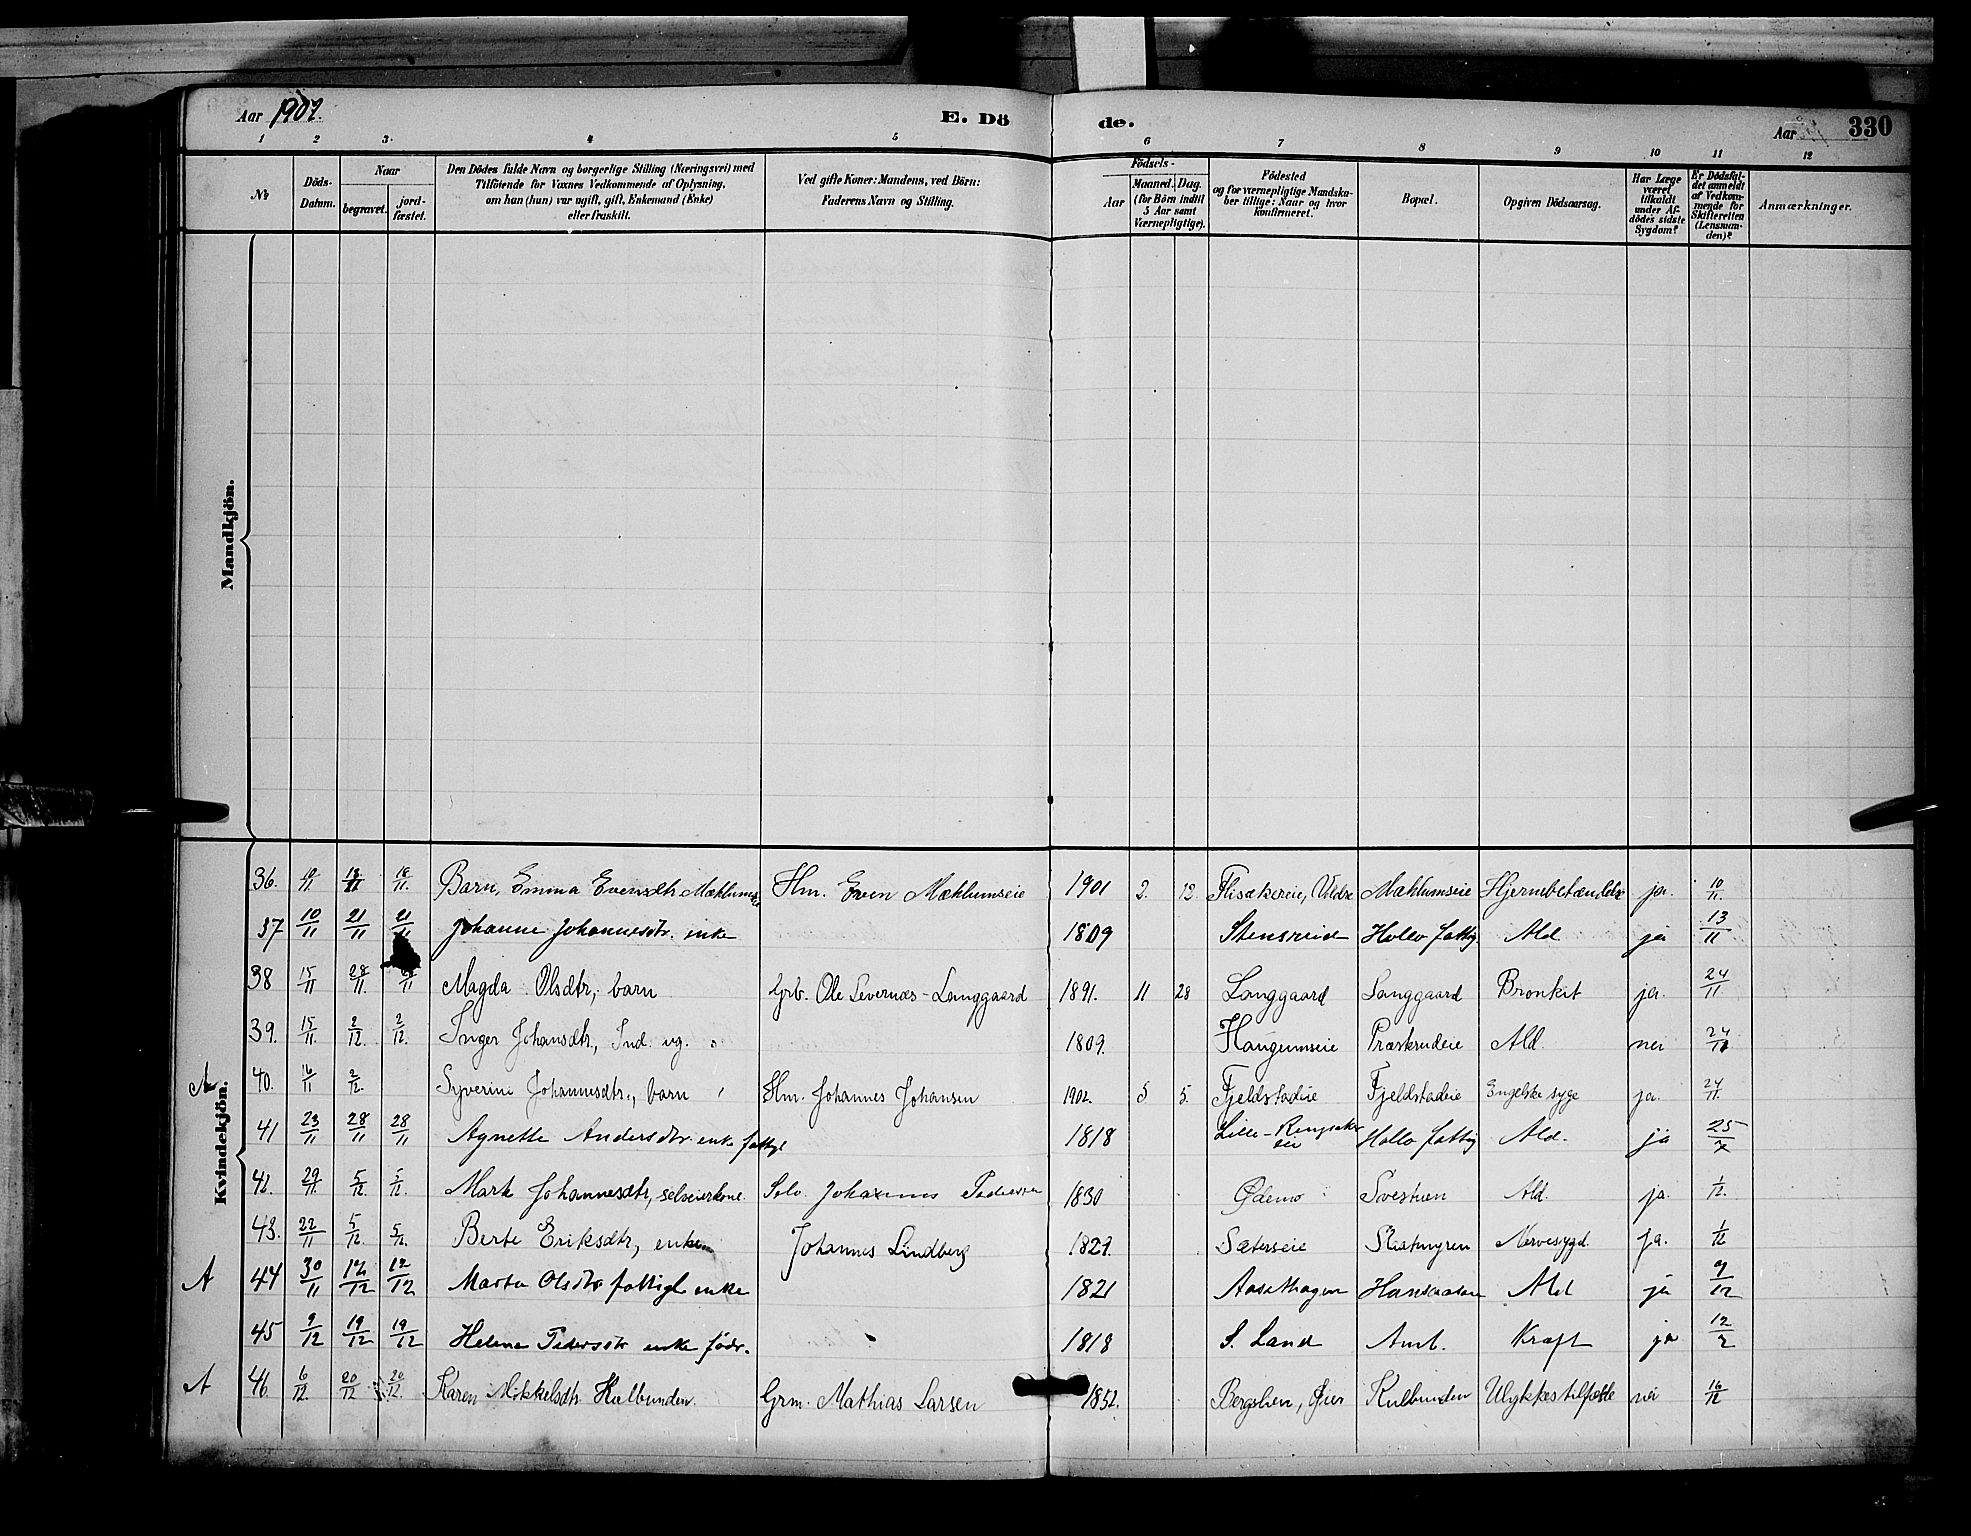 Aar 1902. E. Dö de. Aar 330
1 2 3. 4 5 6 7 8 9 10 11 12
No
Döds-Datum.
Naar
begravet.
jord-fæstet.
Den Dödes fulde Navn og borgerlige Stilling (Næringsvei) med
Tilföiende for Voxnes Vedkommende af Oplysning,
om han (hun) var ugift, gift, Enkemand (Enke)
eller fraskilt.
Ved gifte Koner: Mandens, ved Börn:
Faderens Navn og Stilling.
Födsels-
Aar
Maaned. Dag.
(for Börn indtil
5 Aar samt
Værnepligtige).
Födested
og for værnepligtige Mandska-
ber tillige: Naar og hvor
konfirmeret.
Bopæl.
Opgiven Dödsaarsag.
Har Læge
været
tilkaldt
under Af-
dödes sidste
Sygdom?
Er Dödsfal-
det anmeldt
af Vedkom-
mende for
Skifteretten
(Lensman-
den)?
Anmærkninger.
Mandkjön.
Kvindekjön.
36. 18/11 18/11 Barn, Emma Evensdtr. Mæhlumseie Hm. Even Mæhlumseie 1901 2. 12. Flisakereie, Mæhlumseie Hjernebetændelse ja. 10/11.
37 10/11 21/11 21/11 Johanne Johannesdtr. enke 1809 Stensreid Hollo fattig Ald ja 13/11
38 15/11 28/11. Magda Olsdtr, barn Grb. Ole Severnæs-Langgaard 1891. 11 28 Langgaard Langgaard Bronkit ja. 24/11
39. 15/11. 2/12. 2/12. Inger Johansdtr, Ind. ug. 1809. Haugumseie Præskrudeie Ald. nei 24/11
A 40. 16/11 2/12. Syverine Johannesdtr., barn Hm. Johannes Johansen 1902. 5 5. Fjeldstadeie Fjeldstadeie Engelske syge ja. 24/11.
41 23/11 28/11 28/11 Agnette Andersdtr. enke fattigl 1818 Lille-Ringsaker eie Hollo fattig Ald. ja 25/
42. 29/11. 5/12. 5/12. Marte Johannesdtr, selveierkone Selv. Johannes Pedersen 1830 Ødemo Svestuen Ald. ja. 1/12.
43. 22/11 5/12. 5/12. Berte Eriksdtr, enke Johannes Lindberg 1827. Sæterseie Nervesygd. ja. 1/12
A 44 30/11 12/12 12/12 Marte Olsdtr fattigl. enke 1821 Aasethagen Ald ja 9/12
45 9/12 19/12 19/12 Helene Pedersdtr enke födr. 1818 S. Land Kræft ja 12/
A 46. 6/12. 20/12 20/12. Karen Mikkelsdtr. Hulbunden. Grm. Mathias Larsen 1852. Bergslien, Øier Hulbunden Ulykkestilfælde nei 16/12